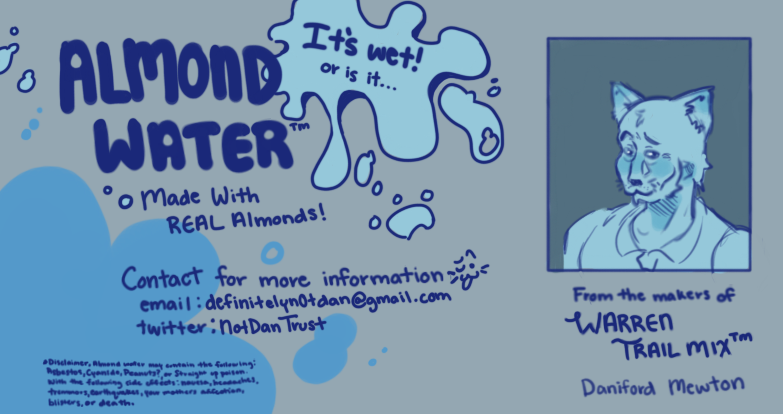 ALMOND
WATER™
It's wet!
or is it...
Made With
REAL Almonds!
Contact for more information
email: definitelyn0tdan@gmail.com
twitter: NotDanTrust
*Disclaimer, Almond water may contain the following:
Asbestos, Cyanide, Peanuts?, or Straight up poison.
With the following side effects: nausea, headaches,
tremmors, earthquakes, your mothers affection,
blisters, or death.
From the makers of
WARREN
TRAIL MIX™
Daniford Mewton